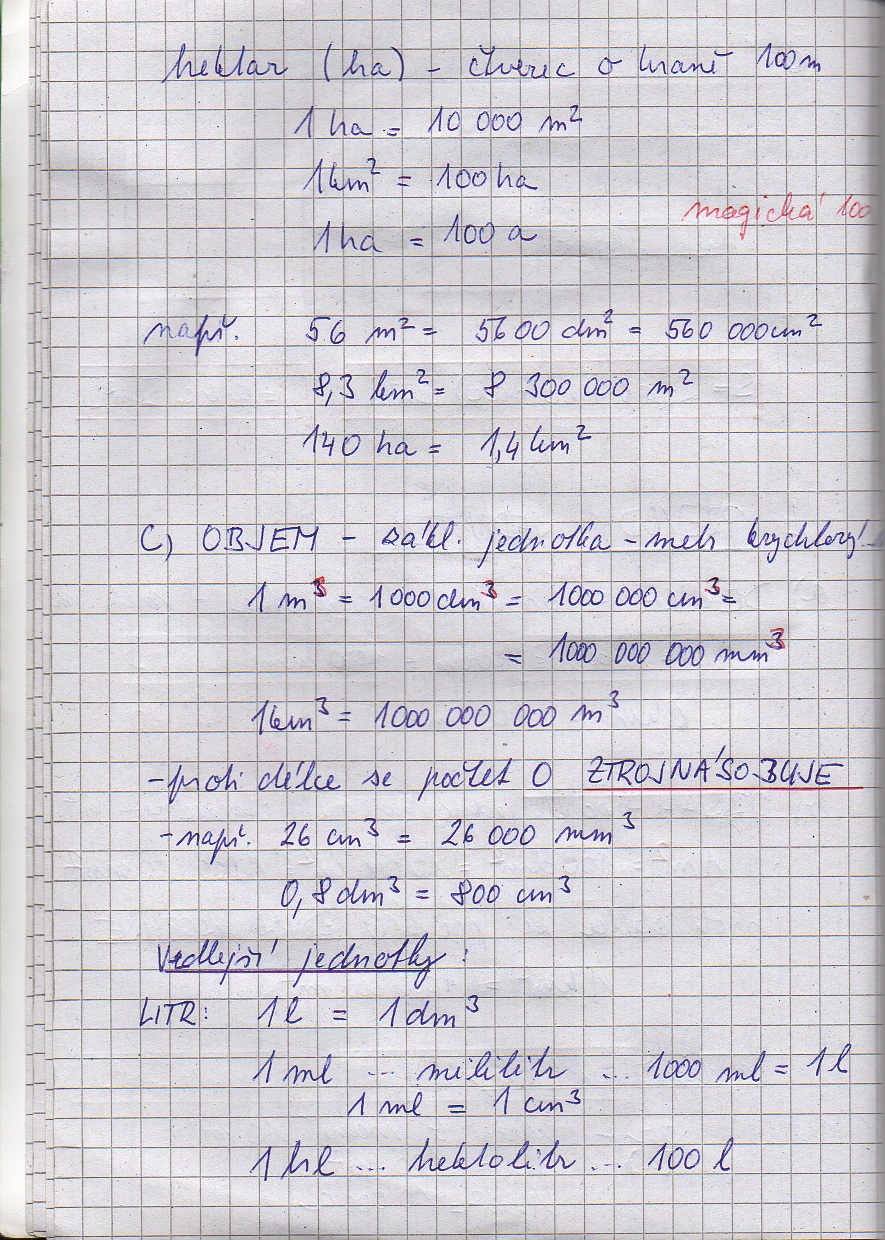 hektar (ha) - čtverec o hraně 100m
1 ha = 10 000 m²
1km² = 100ha
magická 100
1ha = 100 a
např. 56 m² = 5600 dm² = 560 000cm²
8,3 km² = 8 300 000 m²
140 ha = 1,4 km²
C) OBJEM - zákl. jednotka - metr krychlový
1 m³ = 1000 dm³ = 1000 000 cm³ =
= 1000 000 000 mm³
1km³ = 1000 000 000 m³
- proti délce se počet 0 ZTROJNÁSOBUJE
- např. 26 cm³ = 26 000 mm³
0,8 dm³ = 800 cm³
Vedlejší jednotky:
LITR: 1 l = 1 dm³
1 ml ... mililitr ... 1000 ml = 1 l
1 ml = 1 cm³
1 hl ... hektolitr ... 100 l